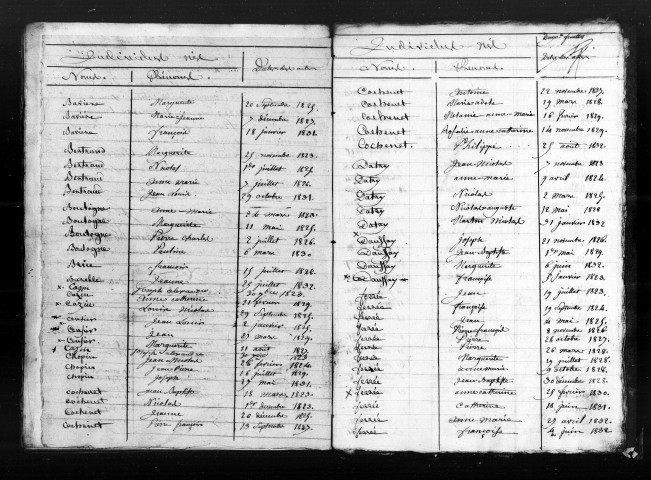 Individus nés
Noms. Prénoms. Date des actes
Bavière Marguerite 20 Septembre 1825.
Bavière Marie Jeanne 7 décembre 1827.
Bavière françois 18 janvier 1831.
Bertrand Marguerite 25 novembre 1823.
Bertrand Nicolas 1er juillet 1825.
Bertrand anne marie 7 juillet 1828.
Bertrand Jean Louis 29 octobre 1831.
Boulogne anne-marie 26 mars 1823.
Boulogne Marguerite 11 mai 1825.
Boulogne Pierre Charles 2 juillet 1826.
Boulogne Pauline 6 mars 1830
françois 15 juillet 1826.
Jeanne 28 juillet 1832.
Joseph alexandre
anne catherine 21 février 1829.
Louis Nicolas 29 Septembre 1825.
Jean Louis 2 janvier
Jean 27 mars
Marguerite 11 août 1827.
Chopin Jean Nicolas 26 février 1824.
Chopin Jean Pierre 16 juillet 1829.
Chopin Joseph 27 mai 1831.
Cochenet Jean Baptiste 18 mars 1823.
Cochenet Nicolas 1er décembre 1823.
Cochenet Jeanne 20 décembre 1825.
Cochenet Pierre françois 13 Septembre 1827.
Individus nés
Noms. Prénoms.
Cochenet antoine 22 novembre 1827.
Cochenet Marie adèle 19 mars 1828.
Cochenet Mélanie-anne-marie 16 février 1829.
Cochenet Rosalie-anne-catherine 14 novembre 1829.
Cochenet. Philippe 25 août 1832.
Datry Jean Nicolas 7 novembre 1823
Datry anne-marie 9 avril 1824.
Datry Nicolas 2 mars 1825.
Datry Nicolas auguste 12 mai 1828
Datry Martin Nicolas 31 janvier 1832
Dauffay Joseph 21 novembre 1826.
Dauffay Jean-Baptiste 1er mai 1829.
Dauffay Marguerite 6 juin 1832.
x Dauffay françois 5 janvier 1828.
ferrée Jean 19 juillet 1823.
ferrée françoise 19 Septembre 1824.
ferrée Jean 4 mai 1825.
ferrée Pierre françois 8 novembre 1826
ferrée Pierre 28 octobre 1827.
ferrée Pierre 26 mars 1828.
ferrée Marguerite 19 juillet 1828.
ferrée 9 octobre 1828.
ferrée Jean-Baptiste 30 décembre 1828.
x ferrée anne catherine 25 février 1830.
ferrée Catherine 18 juin 1831.
ferrée anne Marie 29 avril 1832.
ferrée françoise 4 juin 1832